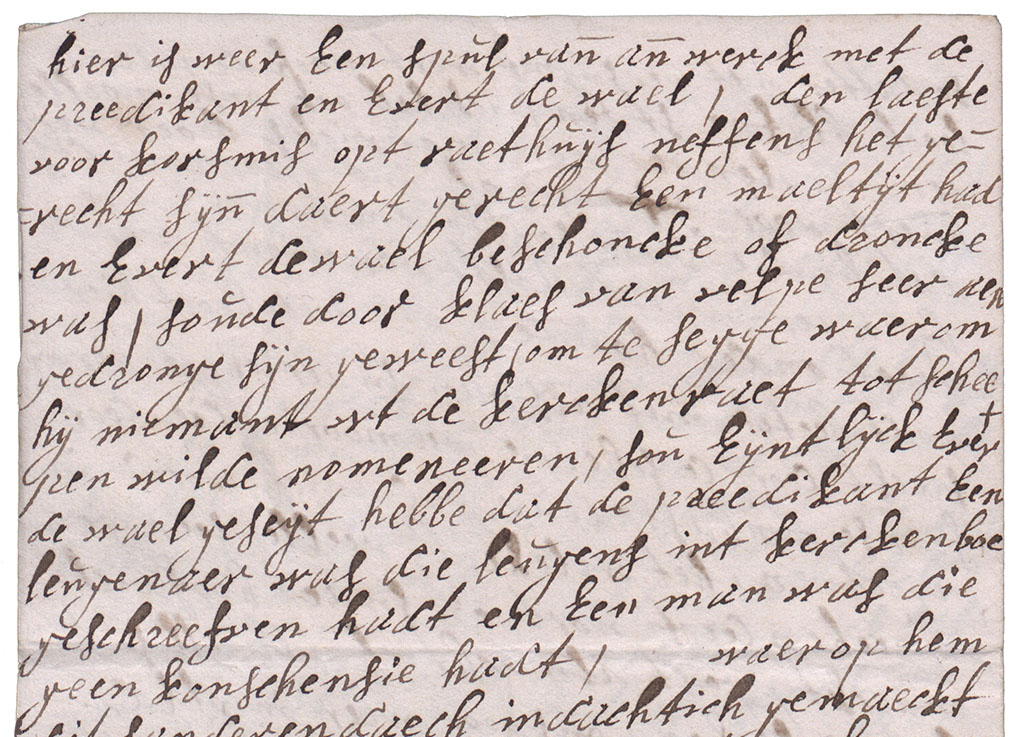 hier is weer Een spul van̄ an̄ werck met de
preedikant en Evert de wael / den laeste
voor korsmis opt raethuijs neffens het ge-
-recht sijn̄ daert gerecht Een maeltijt had
en Evert de wael beschoncke of droncke
was / soude door klaes van velpe seer aen
gedronge sijn geweest / om te segge waerom
hij niemant wt de kerckenraet tot schee
pen wilde nomeneeren / sou Eijntlijck Evert
de wael geseijt hebbe dat de preedikant Een
leugenaer was die leugens int kerckenboe
geschreefven hadt en Een man was die
geen konschensie hadt / waer op hem
sanderendaech indachtich gemaeckt